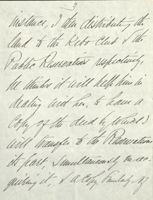 3
instance, I am distributing the
land to the Kebo Club & the
Public Reservation respectively,
he thinks it will help him in
dealing with him, to have a
Copy of the deed by which I
will transfer to the Reservations
it part simultaneously on ac-
quiring it, & a Copy similarly of